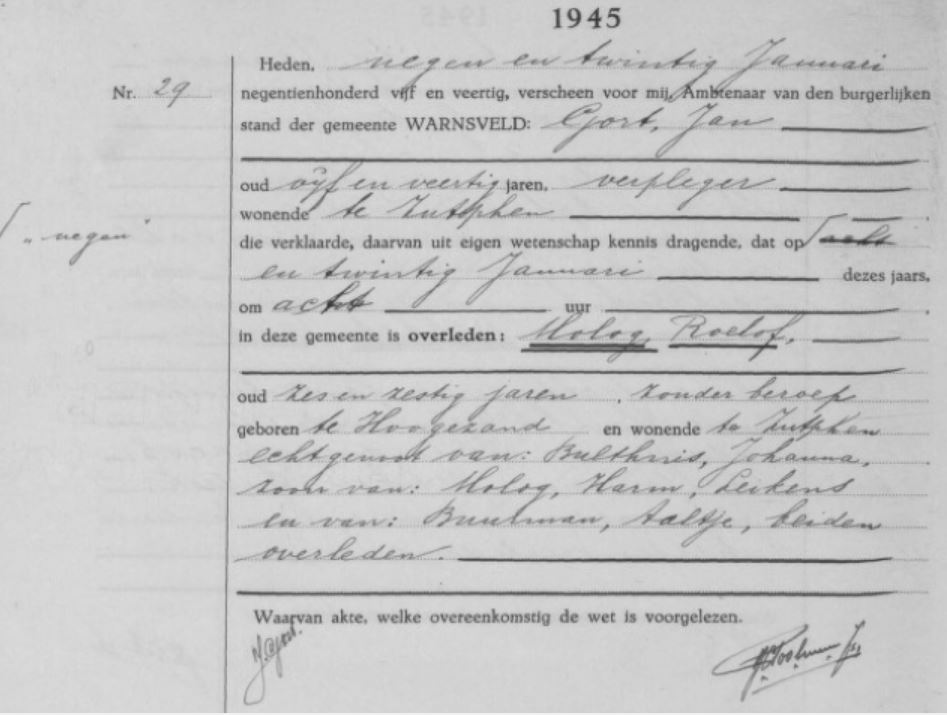 1945
Heden, negen en twintig Januari
Nr. 29 negentienhonderd vijf en veertig, verscheen voor mij, Ambtenaar van den burgerlijken
stand der gemeente WARNSVELD: Gort, Jan
oud vijf en veertig jaren, verpleger
wonende te Zutphen
"negen"
die verklaarde, daarvan uit eigen wetenschap kennis dragende, dat op acht
en twintig Januari dezes jaars,
om acht uur
in deze gemeente is overleden: Molog, Roelof,
oud zes en zestig jaren, zonder beroep
geboren te Hoogezand en wonende te Zutphen
echtgenoot van: Bulthuis, Johanna,
zoon van: Molog, Harm, Leikens
en van: Buurman, Aaltje, beiden
overleden.
Waarvan akte, welke overeenkomstig de wet is voorgelezen.
J. Gort.